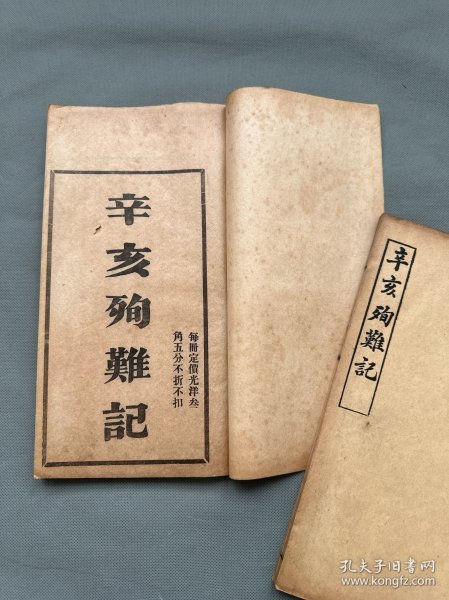 辛亥殉難記
每冊定價光洋叁
角五分不折不扣
辛亥殉難記
孔夫子旧书网
www.kongfz.com